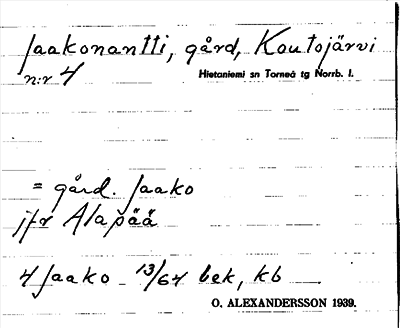 Jaakonantti, gård, Koutojärvi
n:r 4 Hietaniemi sn Torneå tg Norrb. l.
= gård. Jaako
jfr Alapää
4 Jaako 13/64 bek, kb
O. ALEXANDERSSON 1939.